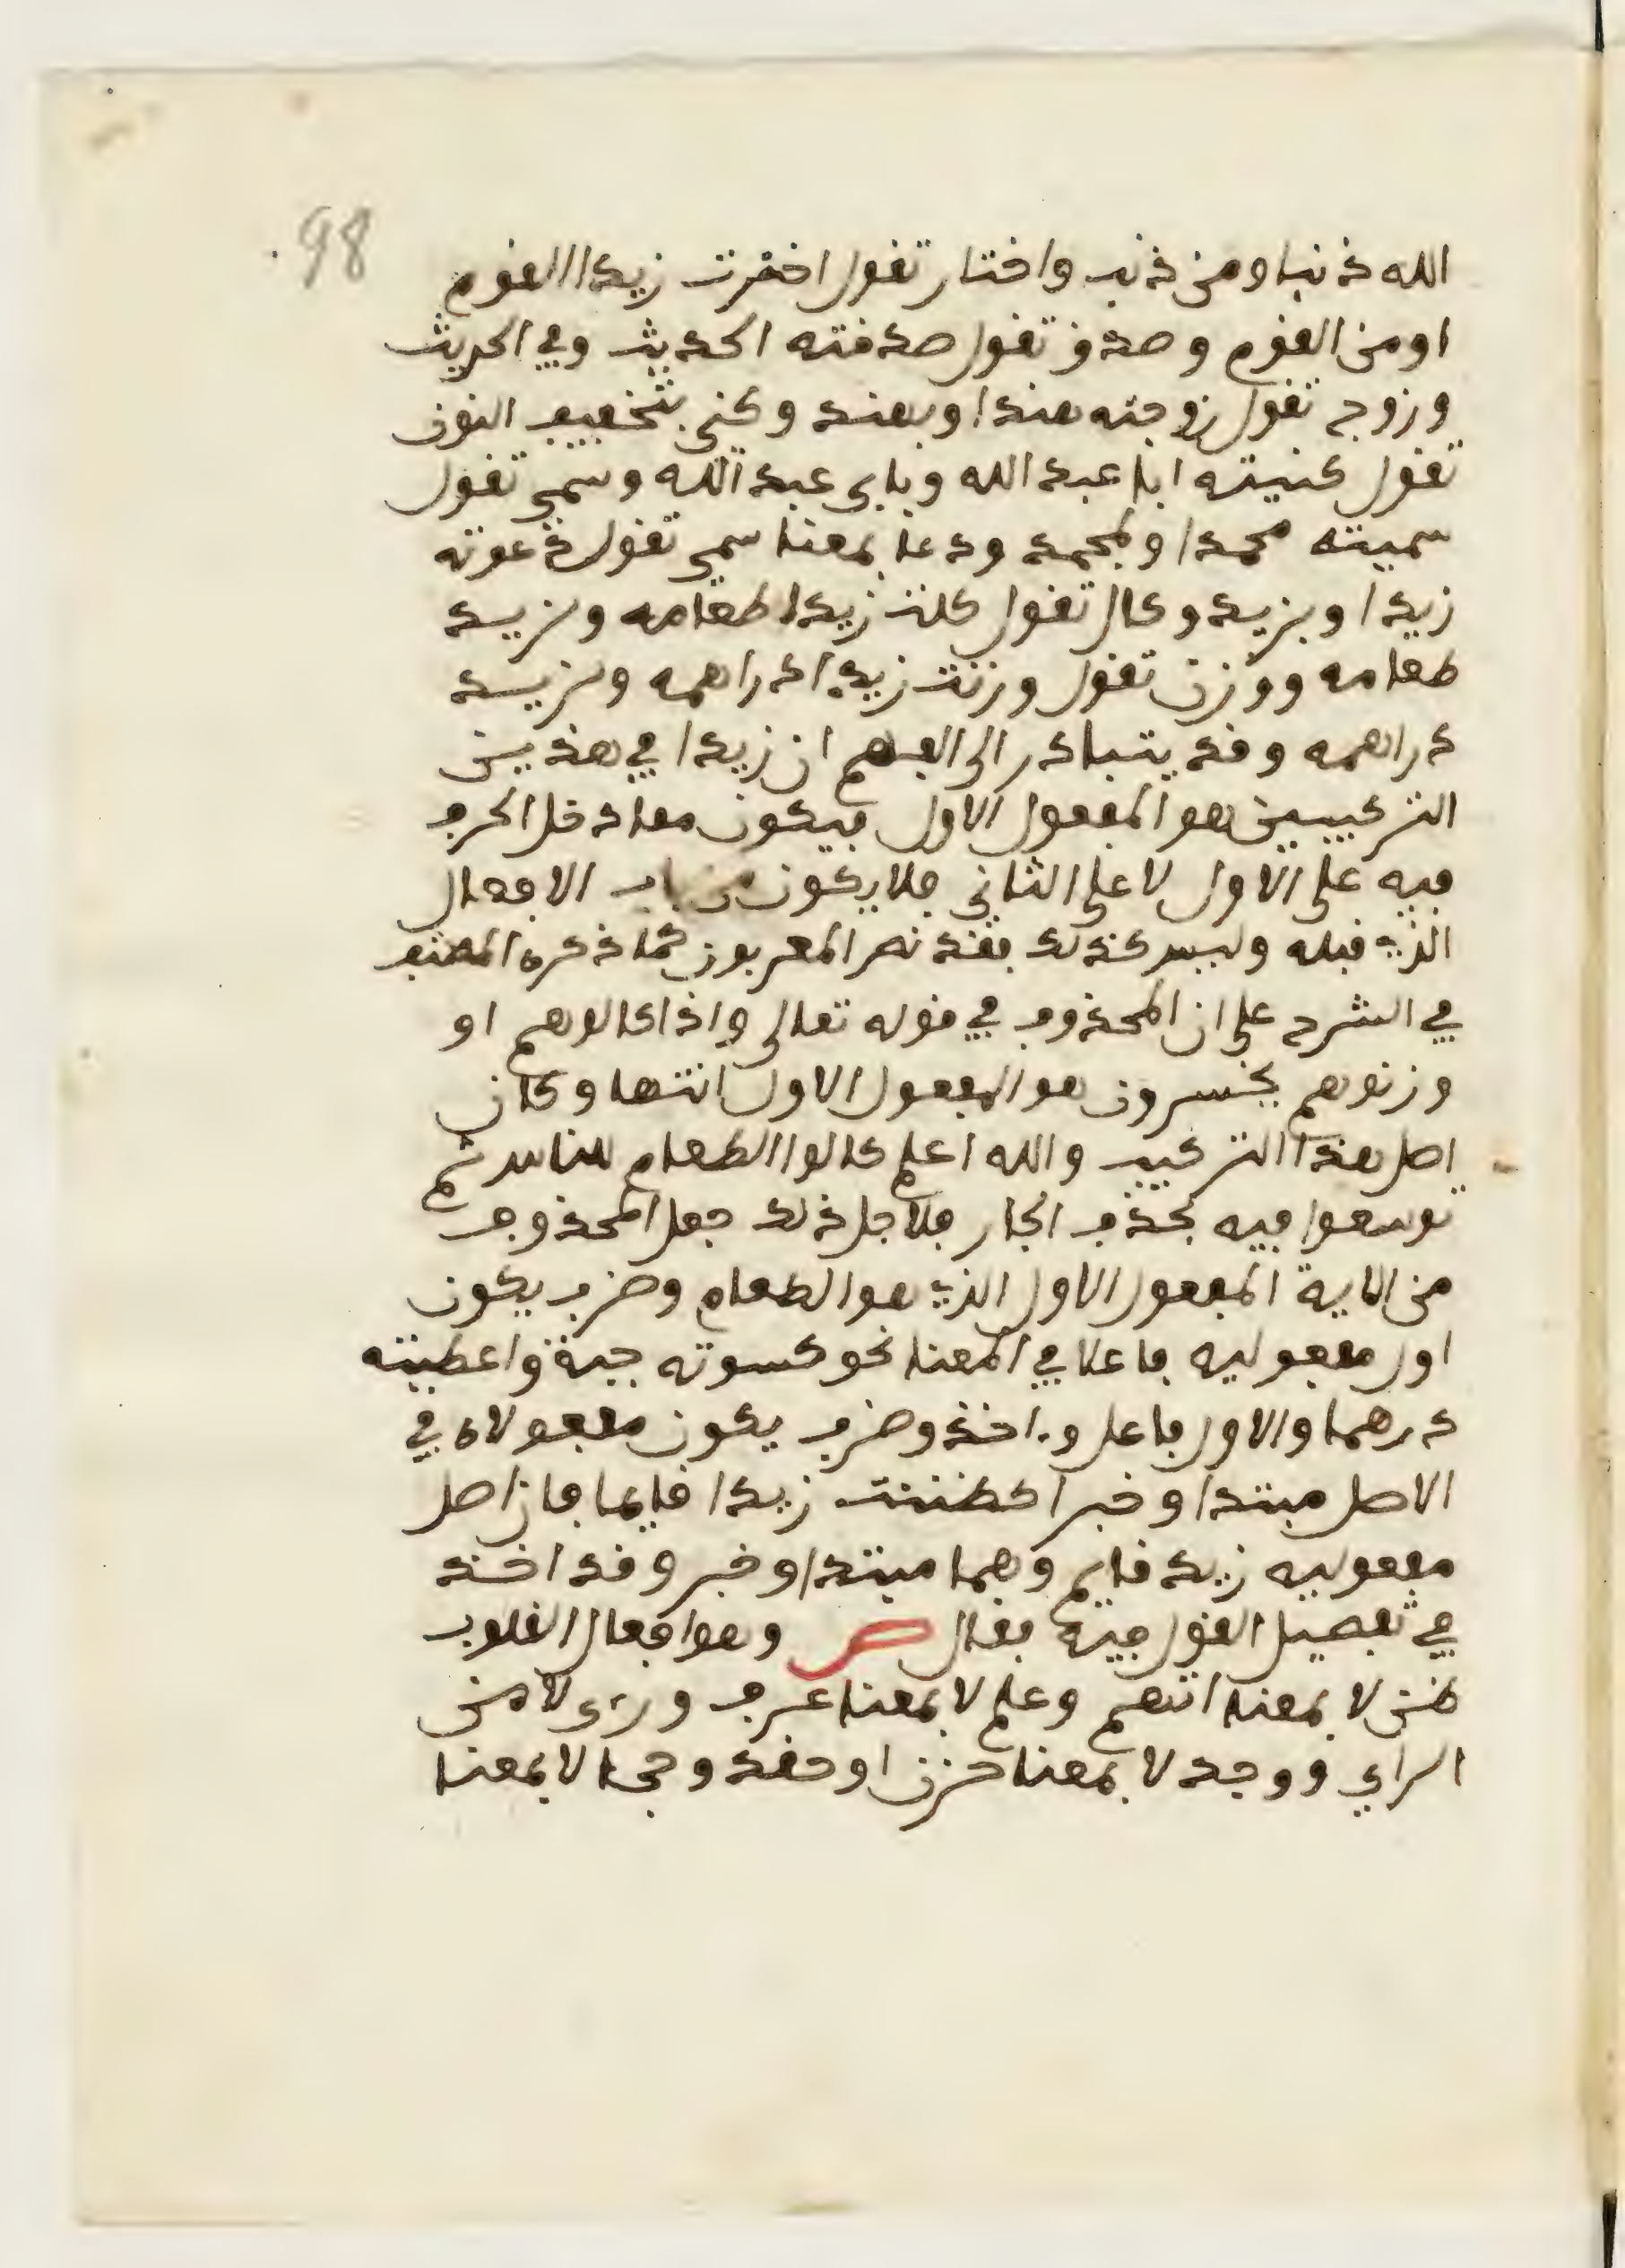 98.
الله ذنبا ومن ذنب واختار تقول اخترت زيدا القوم
او من القوم وصدق تقول صدقته الحديث وفي الحديث
وزوج تقول زوجته هندا وبهند وكنى بتخفيف النون
تقول كنيته ابا عبد الله وبابي عبد الله وسمى تقول
سميته محمدا وبمحمد ودعا بمعنا سمى تقول دعوته
زيدا وبزيد وكال تقول كلت زيدا طعامه ولزيد
طعامه ووزن تقول وزنت زيدا دراهمه ولزيد
دراهمه وقد يتبادر الى الفهم ان زيدا في هذين
التركيبين هو المفعول الاول فيكون معاد خل الحرف
فيه على الاول لا على الثاني فلا يكون من باب الافعال
الذي قبله وليس كذلك فقد نص المعربون كما ذكره المصنف
في الشرح على ان المحذوف في قوله تعالى واذا كالوهم او
وزنوهم يخسرون هو المفعول الاول انتها وكان
اصل هذا التركيب والله اعلم كالوا الطعام للناس ثم
توسعوا فيه بحذف الجار فلاجل ذلك جعل المحذوف
من الاية المفعول الاول الذي هو الطعام وضرب يكون
اول مفعوليه فاعلا في المعنا نحو كسوته جبة واعطيته
درهما والاول فاعل واخذ وضرب يكون مفعولاه في
الاصل مبتدا وخبرا كظننت زيدا قايما فان اصل
مفعوليه زيد قايم وهما مبتدا وخبر وقد اخذ
في تفصيل القول فيه فقال ص وهو افعال القلوب
ظن لا بمعنا اتهم وعلم لا بمعنا عرف ورءى لا من
الراي ووجد لا بمعنا حزن او حقد وحجا لا بمعنا